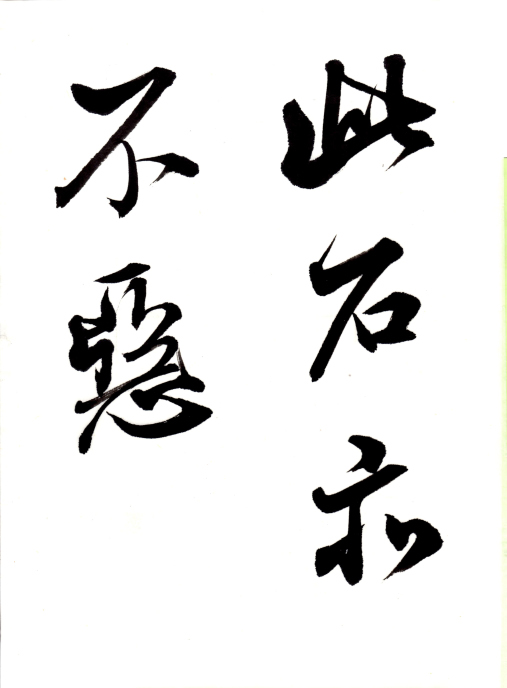 此石亦
不惡